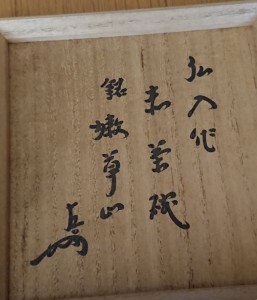 弘入作
赤茶碗
銘嫩草山